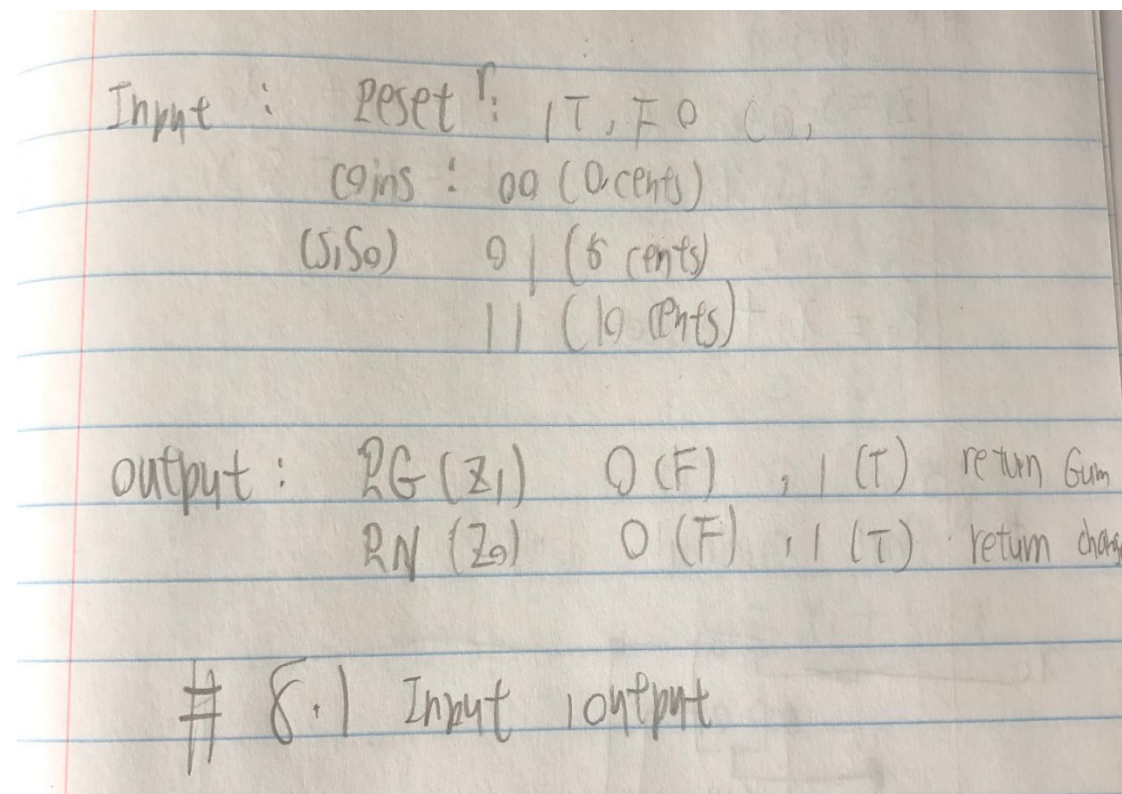 Input : Reset r: 1T, F0
coins : 00 (0 cents)
(S1S0) 01 (5 cents)
11 (10 cents)
output : RG (Z1) 0 (F) , 1 (T) return Gum
RN (Z0) 0 (F) , 1 (T) return chang
# 8.1 Input output